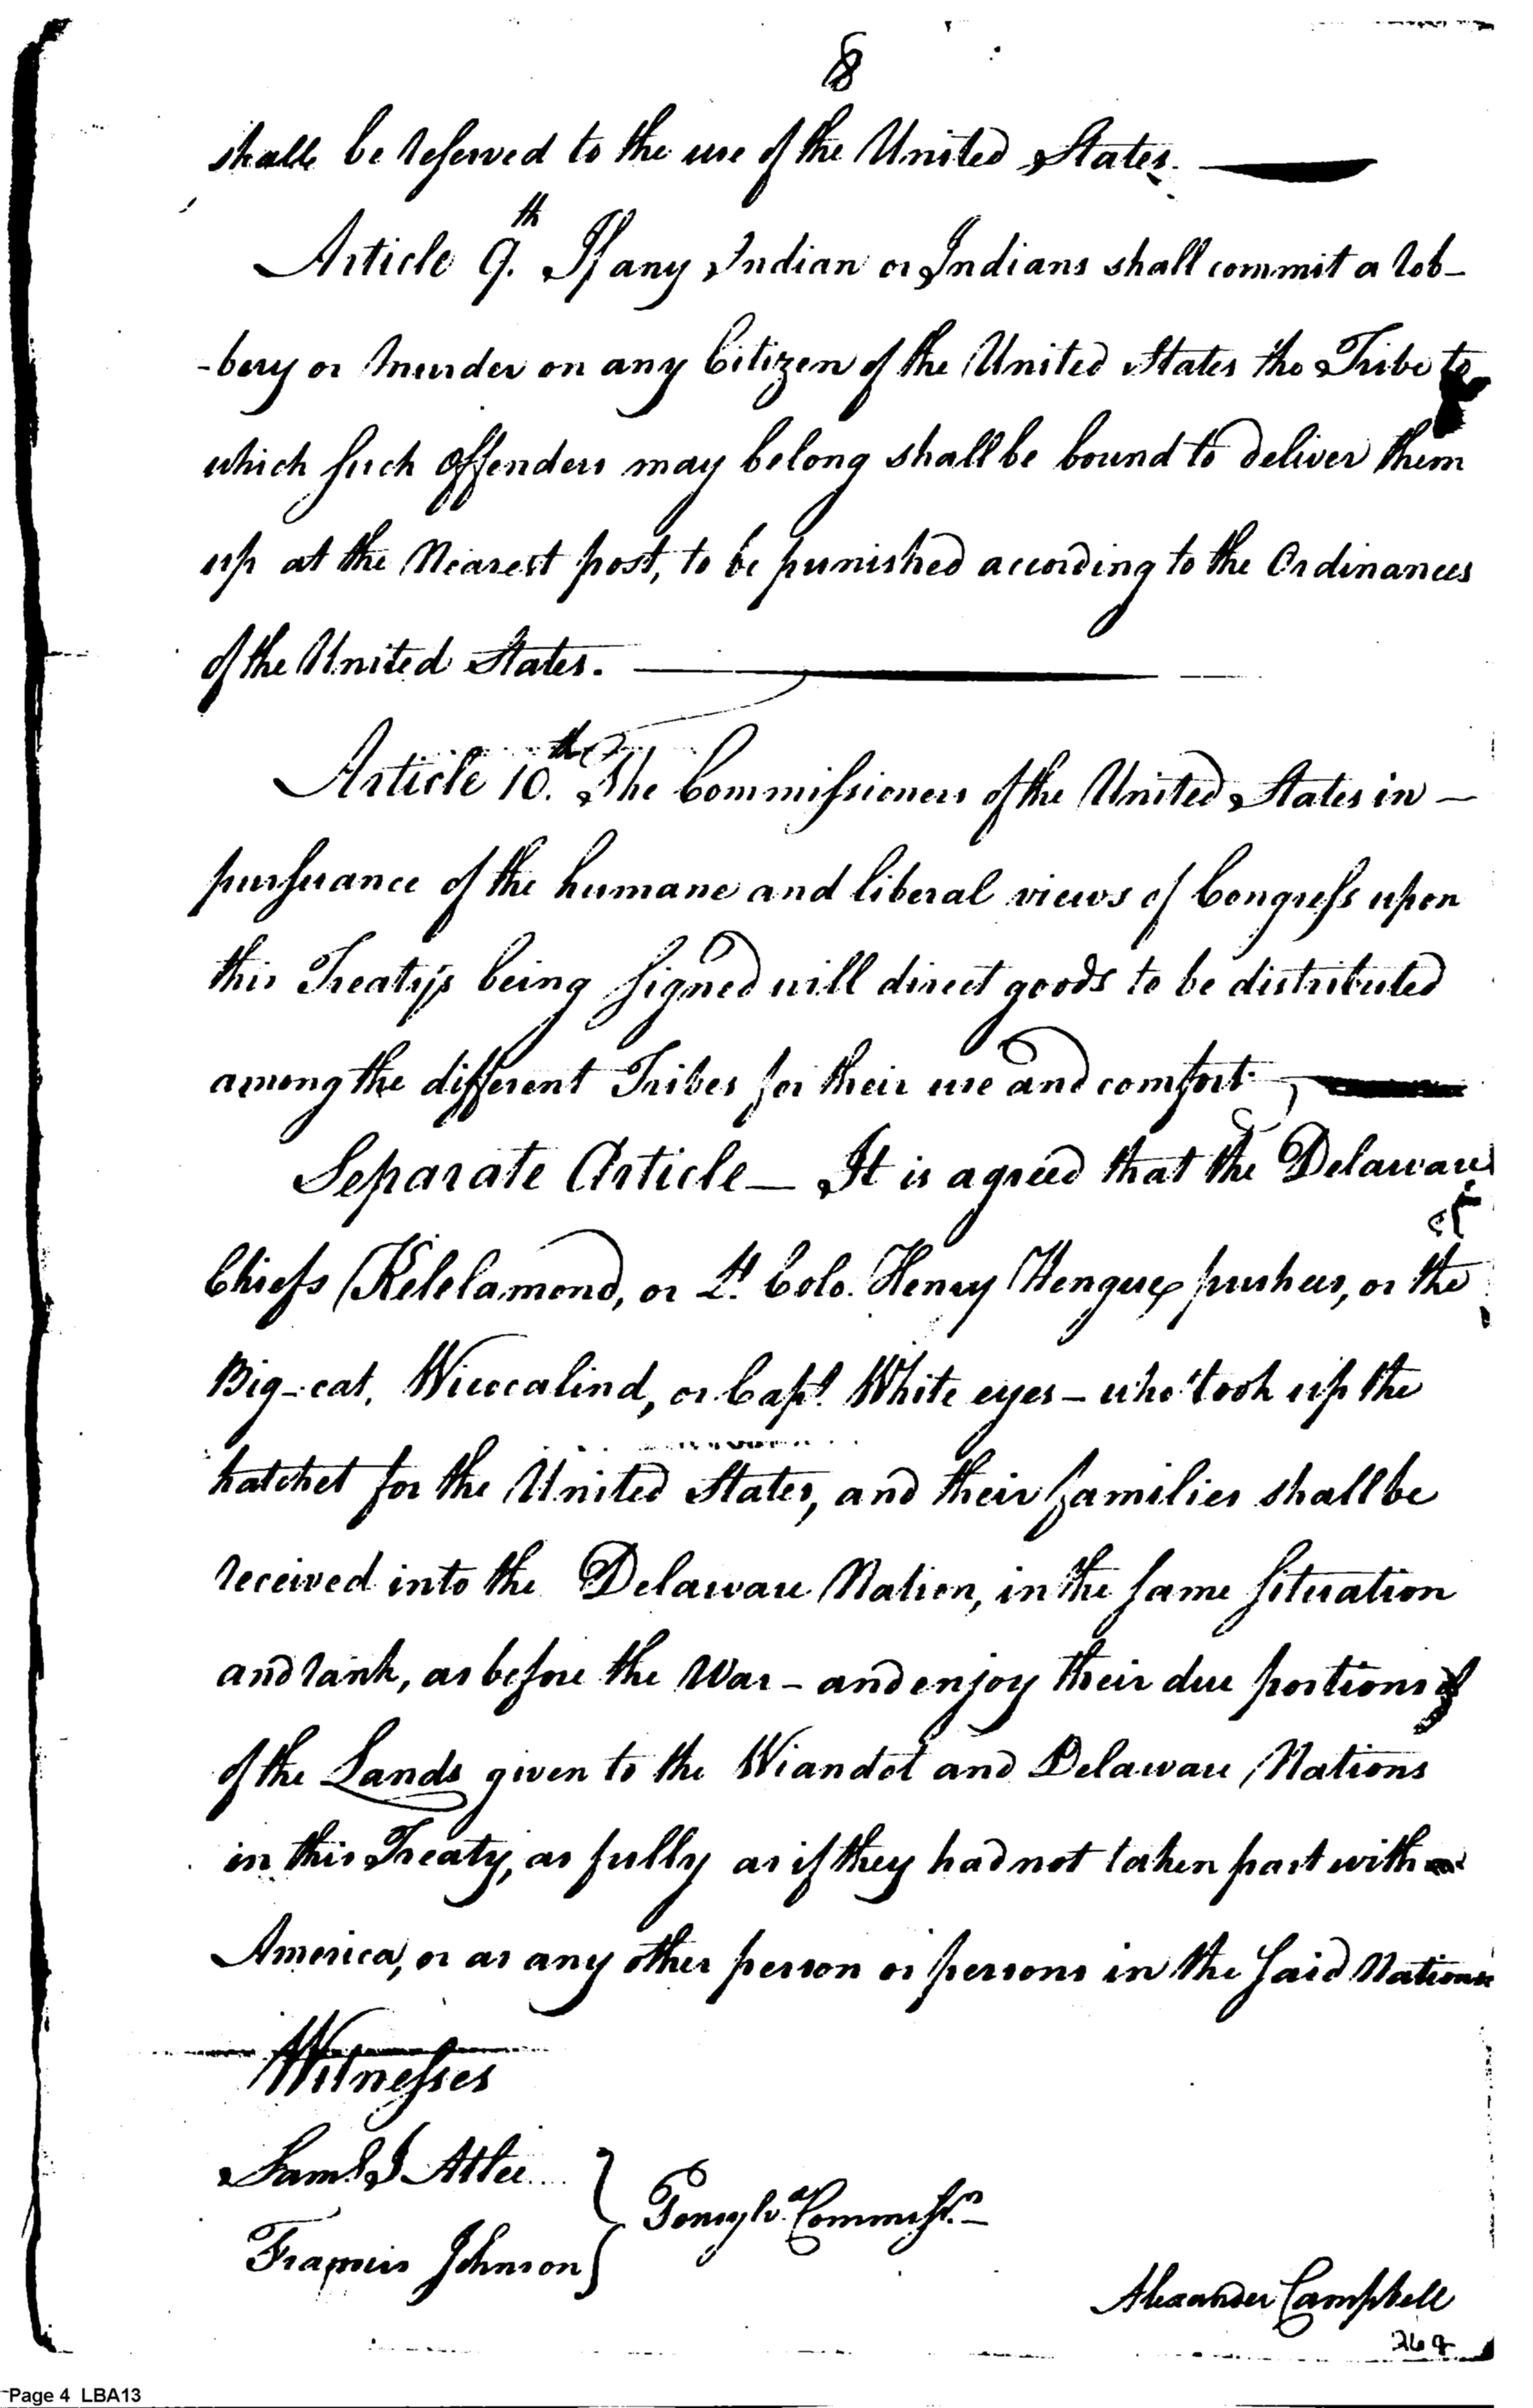 8
shall be reserved to the use of the United States.
Article 9.th If any Indian or Indians shall commit a rob-
-bery or murder on any Citizen of the United States the Tribe to
which such offenders may belong shall be bound to deliver them
up at the Nearest post, to be punished according to the Ordinances
of the United States.
Article 10.th The Commissioners of the United States in
pursuance of the humane and liberal views of Congress upon
this Treaty's being signed will direct goods to be distributed
among the different Tribes for their use and comfort
Separate Article — It is agreed that the Delaware
Chiefs Kelelamond, or Lt. Colo. Henry Hengue pushees, or the
Big-cat, Wicocalind, or Capt. White eyes — who took up the
hatchet for the United States, and their families shall be
received into the Delaware Nation, in the same situation
and rank, as before the War — and enjoy their due portions
of the Lands given to the Wiandot and Delaware Nations
in this Treaty, as fully as if they had not taken part with
America, or as any other person or persons in the said Nations
Witnesses
Saml. J Atlee
Francis Johnson } Pensylva. Commissrs.
Alexander Campbell
269
Page 4 LBA13